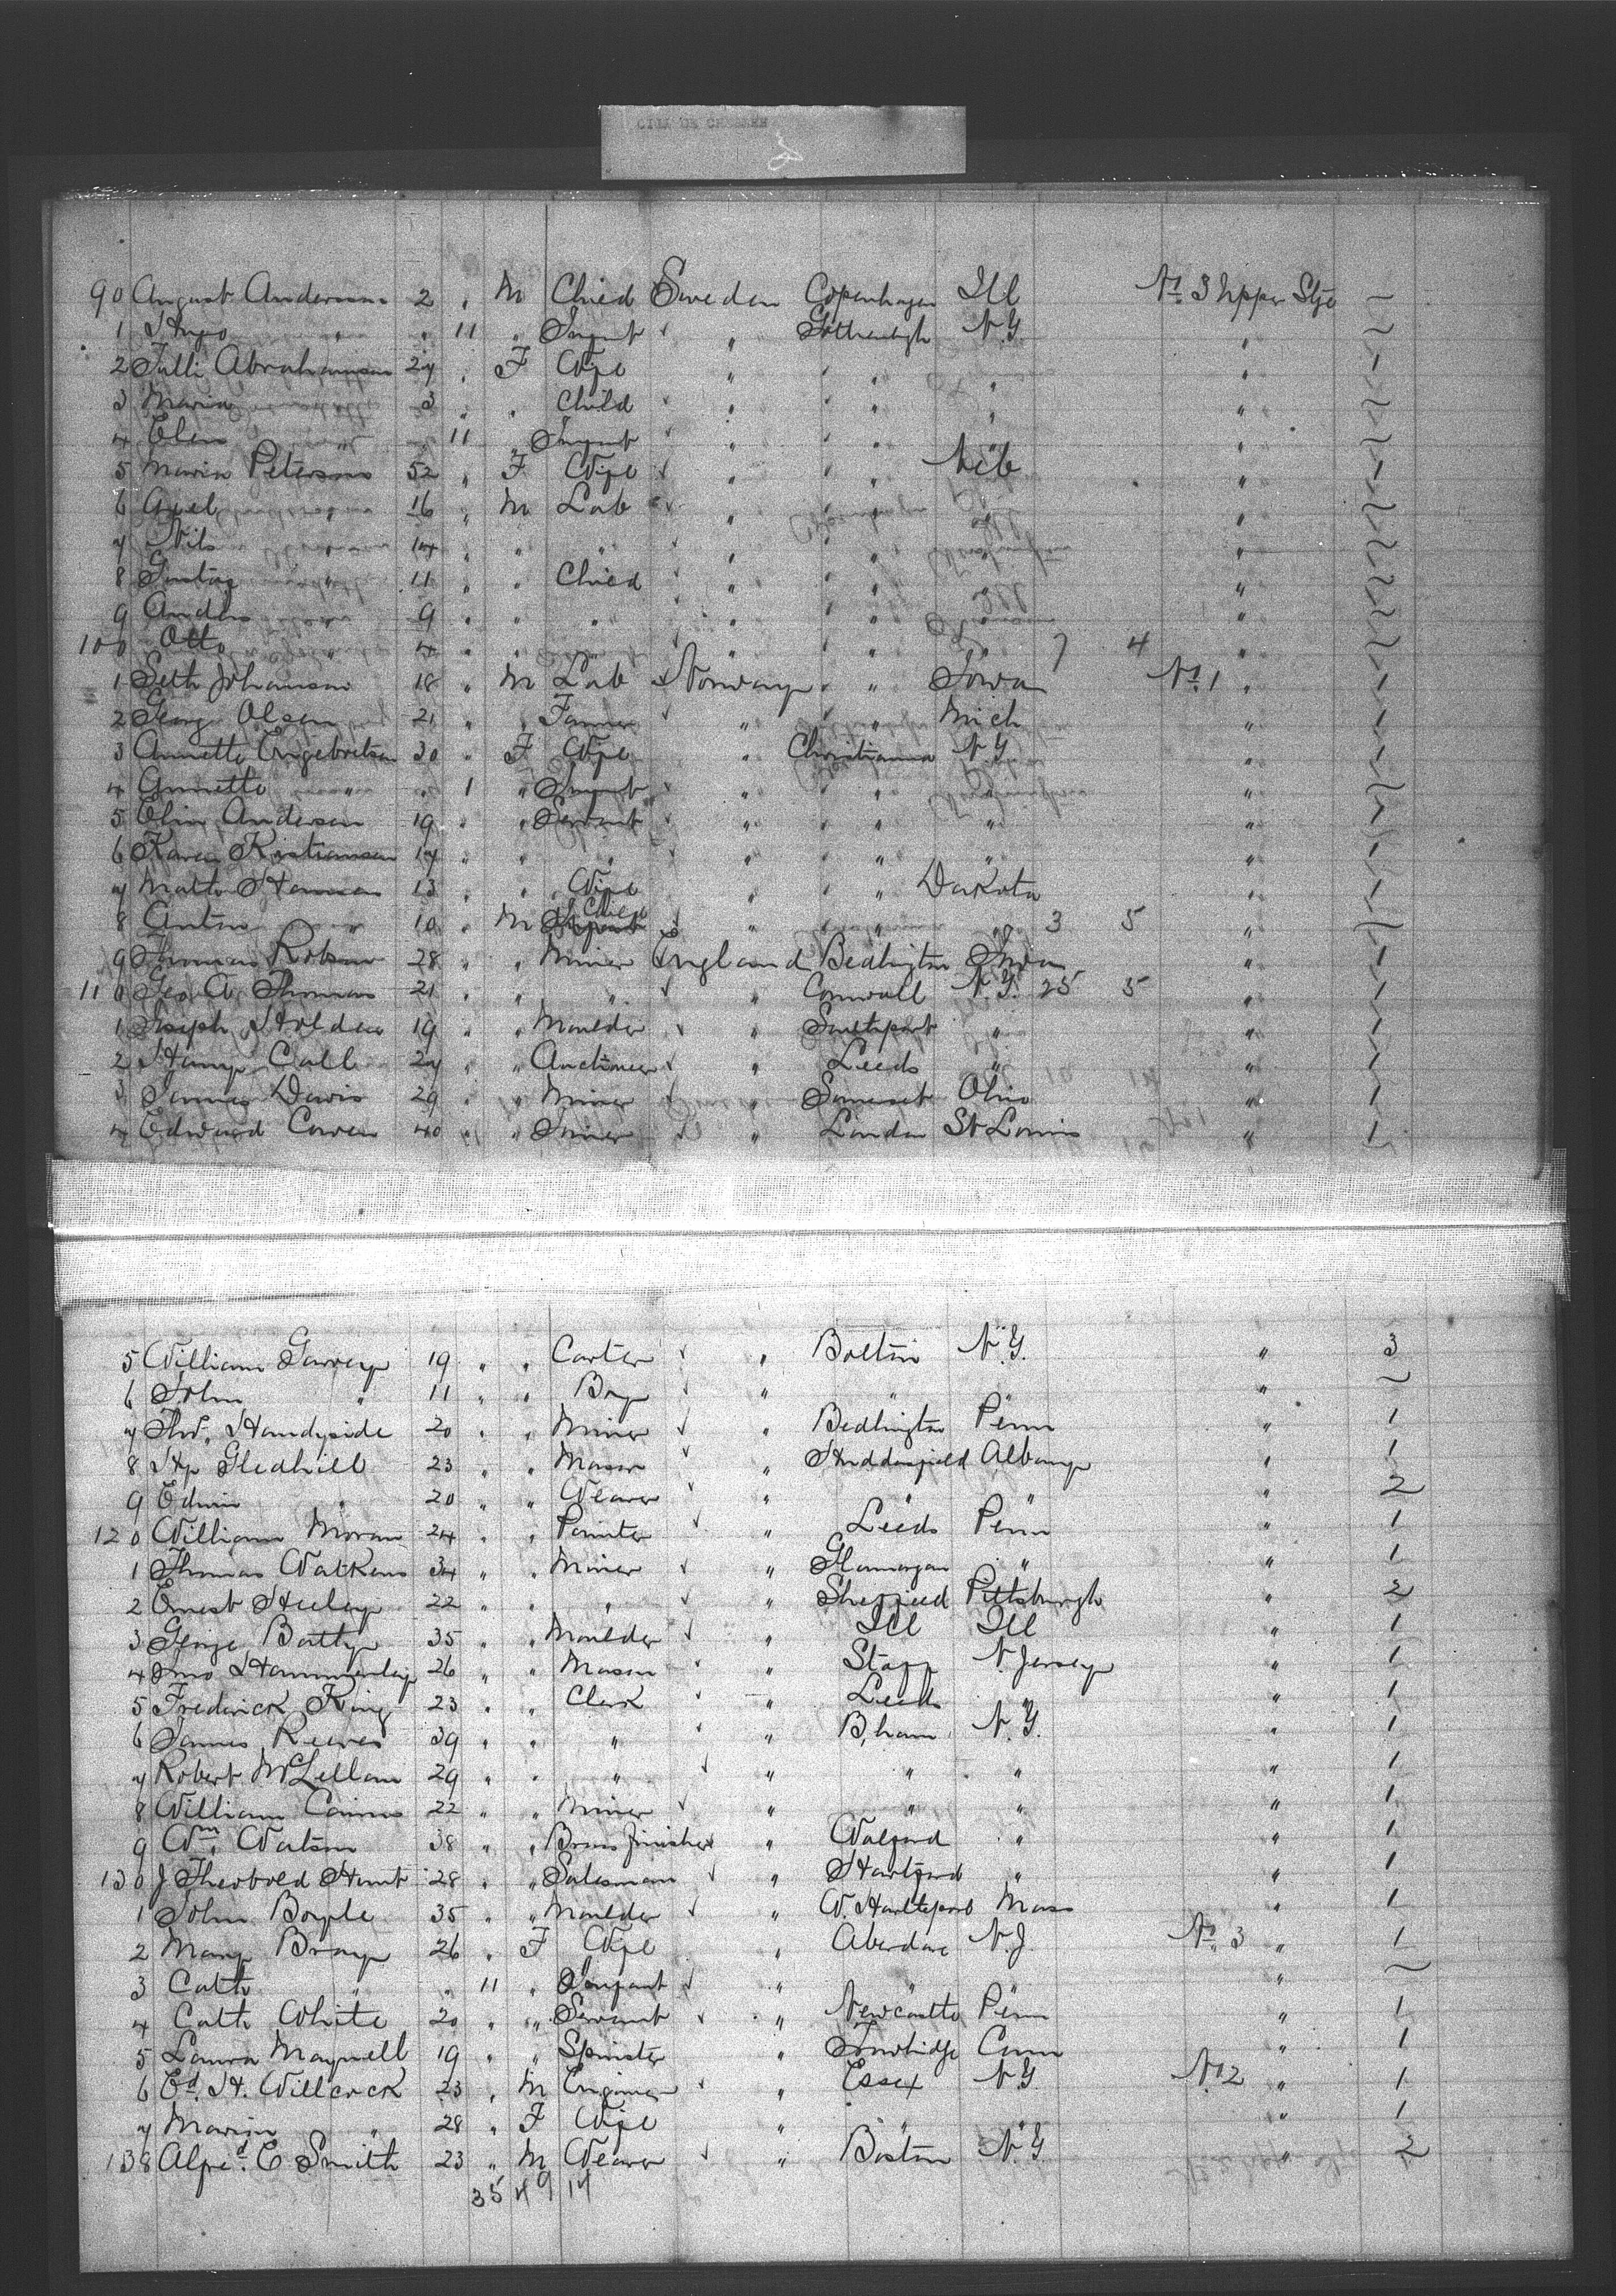 CITY OF CHESTER
2
90 August Anderson 2 " M Child Sweden Copenhagen Ill No 3 Upper Stge
1 Hugo " " 11 " Infant " Gothenbgh N.Y. "
2 Julli Abrahamson 24 " F Wife " " " " "
3 Maria " 3 " " Child " " " " "
4 Elen " " 11 " Infant " " " " "
5 Maria Peterson 52 " F Wife " " " Neb "
6 Axel " 16 " M Lab " " " " "
7 Nils " 14 " " " " " " " "
8 Gustaf " 11 " " Child " " " " "
9 Anders " 9 " " " " " " " "
100 Otto " 4 " " " " " " " 7 4 "
1 Seth Johanson 18 " M Lab Norway " " Iowa No 1 "
2 Georg Olsen 21 " " Farmer " " " Mich "
3 Annette Engebretsen 30 " F Wife " Christianna N.Y. "
4 Annette " " 1 " Infant " " " " "
5 Elin Andersen 19 " " Servant " " " " "
6 Karen Kristiansen 17 " " " " " " " "
7 Hansen 13 " " Wife " " " Dakota "
8 Anton " 10 " M Child " " " " 3 5 "
9 Thomas Robson 28 " " Miner England Bedlington Inda "
110 Geo A. Thomas 21 " " " " Cornwall N.Y. 25 5 "
1 Joseph Holden 19 " " Moulder " Southport " "
2 Call 24 " " Auctioneer " Leeds " "
3 James Davis 29 " " Miner " Somerset Ohio "
4 Edward Cowen 40 " " " London St Louis "
5 William Garvey 19 " " Carter " Bolton N.Y. " 3
6 John " 11 " " Boy " " " "
7 Thos. Handyside 20 " " Miner " Bedlington Penn " 1
8 Hy Gledhill 23 " " Mason " Huddersfield Albany " 1
9 Edwin " 20 " " Weaver " " " " 2
120 William Moran 24 " " Painter " Leeds Penn " 1
1 Thomas Watkins 34 " " Miner " Glamorgan " " 1
2 Ernest Heeley 22 " " " " Sheffield Pittsburgh " 2
3 George Batty 35 " " Moulder " Ill Ill " 1
4 Jno Hammersley 26 " " Mason " Staff N. Jersey " 1
5 Frederick King 23 " " Clerk " Leeds " " 1
6 James Reeves 39 " " " " B,ham N.Y. " 1
7 Robert McLellan 29 " " " " " " " 1
8 William Cairns 22 " " Miner " " " " 1
9 Wm. Watson 38 " " Brass finisher " Watford " " 1
130 J Theobold Hunt 28 " " Salesman " Hartford " " 1
1 John Boyle 35 " " Moulder " W. Hartlepool Mass " 1
2 Mary Bray 26 " F Wife " Aberdare N.J. No. 3 " 1
3 Cath " " 11 " Infant " " " "
4 Cath White 20 " " Servant " Newcastle Penn " 1
5 Laura Maxwell 19 " " Spinster " Trowbidge Conn " 1
6 Ed. H. Willcock 23 " M Engineer " Essex N.Y. No 2 " 1
7 Marion " 28 " F Wife " " " " 1
138 Alfred. E Smith 23 " M Weaver " Boston N.Y. " 2
35 4 9 14